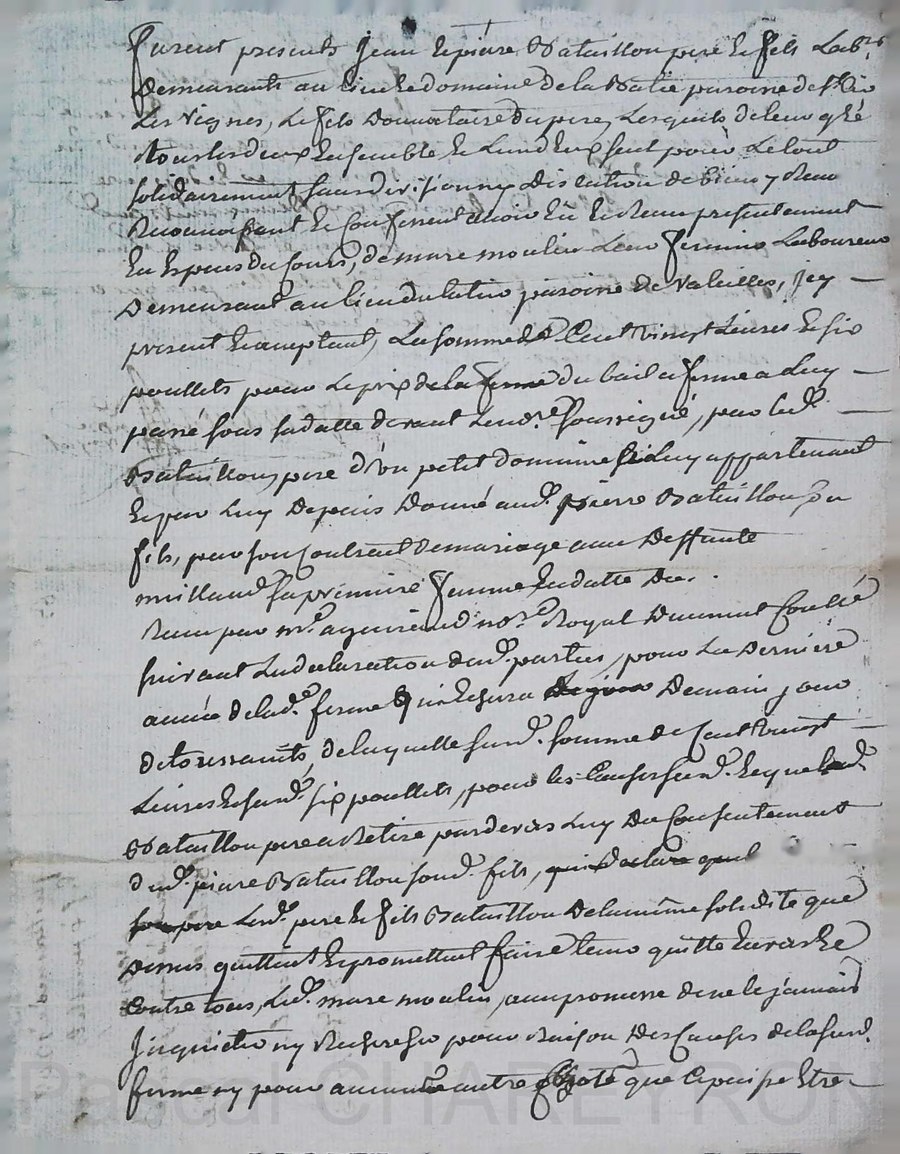 furent presents Jean et piere Bataillon pere et fils Lab.rs
demeurants au lieu et domaine de la Batie paroisse de St
Les Vignes, Le fils Donnataire du pere, Lesquels de leur gré
tous les deux ensemble et Lun deux seul pour Le tout
solidairement sans division ny discution de biens, ont
Reconnaissant et Confessent avoir Eu et Receu presentement
En Especes du Cours, de mare moulin Leur fermier Laboureur
Demeurant au lieu du paroisse de Valeilles, Icy
present et acceptant, La somme de Cent vingt Livres et six
poullets pour Le prix de la ferme du bail a ferme a Luy
passé sous sa datte devant Le no.re soussigné, par led.
Bataillon, pere d'un petit domaine a Luy appartenant
et par Luy Depuis Donné aud. pierre Bataillon son
fils, par son Contract de mariage avec Deffunte
milland sa premiere femme en datte du .
Receu par m.e no.re Royal Duement Conllé
suivant La declaration desd. parties, pour La Derniere
année de lad. ferme qui echera Demain jour
de toussaints, de laquelle susd. somme de Cent Vingt
Livres et susd. six poullets, pour les Causes susd. et que led.
Bataillon pere a Retiré pardevers Luy Du Consentement
dud. piere Bataillon sond. fils, qui declare quil
son pere Lesd. pere et fils Bataillon De la même solidité que
Dessus quittent et promettent faire tenir quitte Envers et
Contre tous, Led. mare moulin, avec promesse de ne le jamais
Inquieter ny Rechercher pour Raison Des Causes de la susd.
ferme ny pour aucune autre que ce puisse Etre
Pascal CHAREYRON